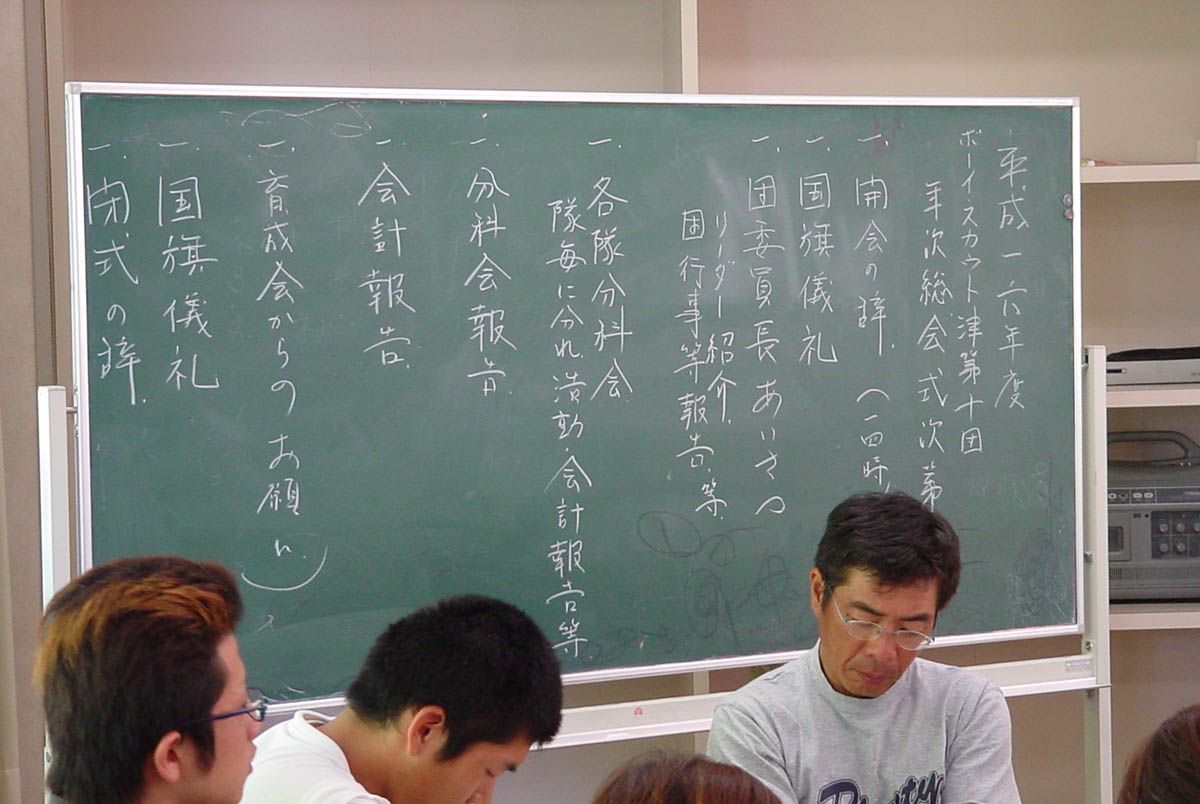 平成一六年度
ボーイスカウト津第十団
年次総会式次第
一. 開会の辞. (一四時
一. 国旗儀礼
一. 団委員長あいさつ
リーダー紹介.
団行事等報告.等.
一. 各隊分科会
隊毎に分れ.活動.会計報告等
一. 分科会報告.
一. 会計報告.
一. 育成会からのお願い.
一. 国旗儀礼
一. 閉式の辞.